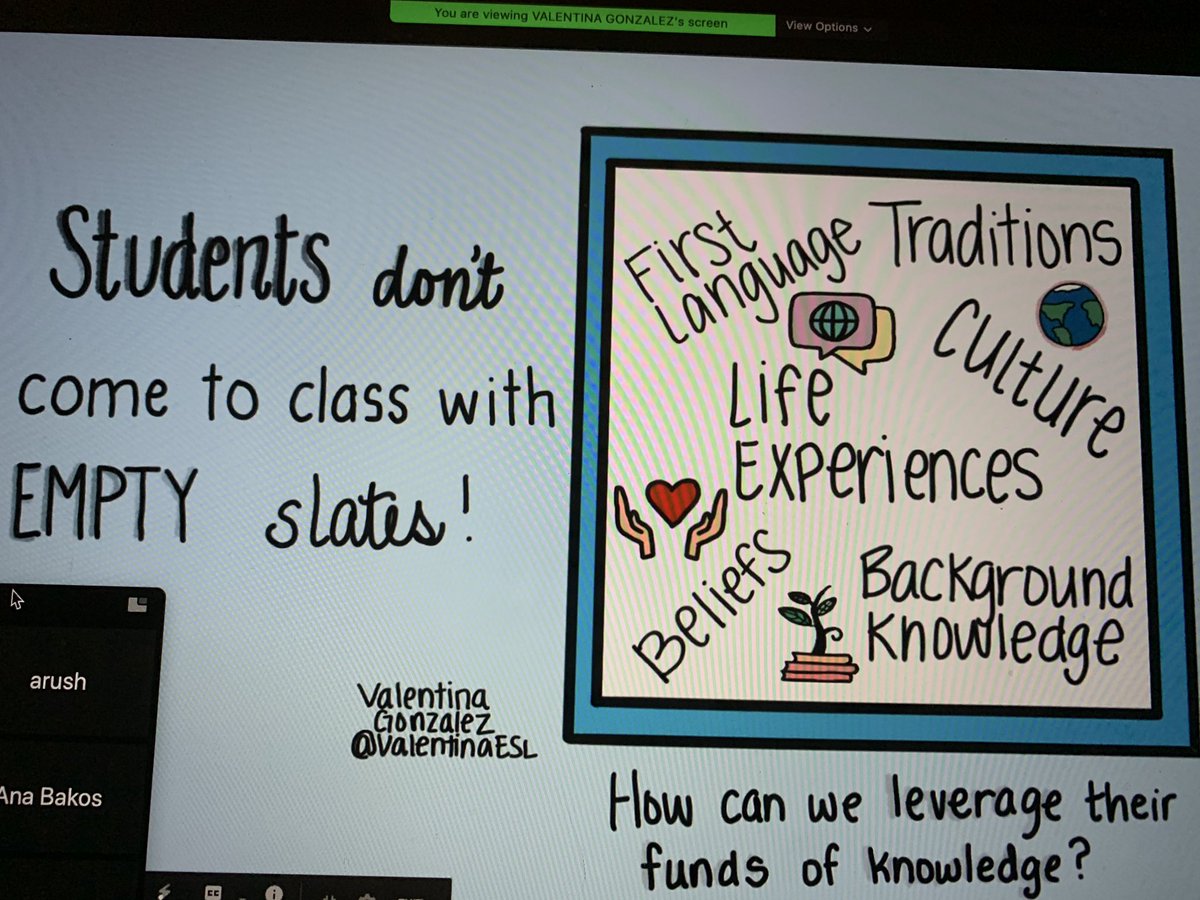 You are viewing VALENTINA GONZALEZ's screen
View Options
Students don't
come to class with
EMPTY slates!
First
Language
Traditions
Culture
Life
Experiences
Beliefs
Background
Knowledge
Valentina
Gonzalez
@ValentinaESL
How can we leverage their
funds of knowledge?
arush
Ana Bakos
CC